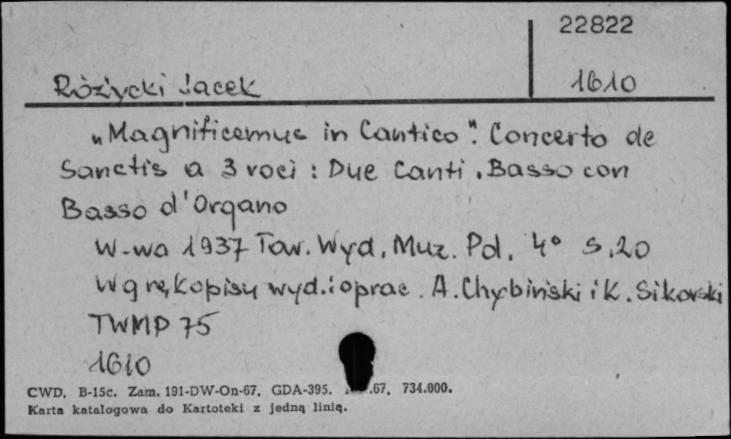 22822
Różycki Jacek 1610
„Magnificemus in Cantico". Concerto de
Sanctis a 3 voci : Due Canti, Basso con
Basso d'Organo
W-wa 1937 Tow. Wyd. Muz. Pol. 4° s. 20
Wg rękopisu wyd. i oprac. A. Chybiński i K. Sikorski
TWMP 75
1610
CWD. B-15c. Zam. 191-DW-On-67. GDA-395. .67. 734.000.
Karta katalogowa do Kartoteki z jedną linią.